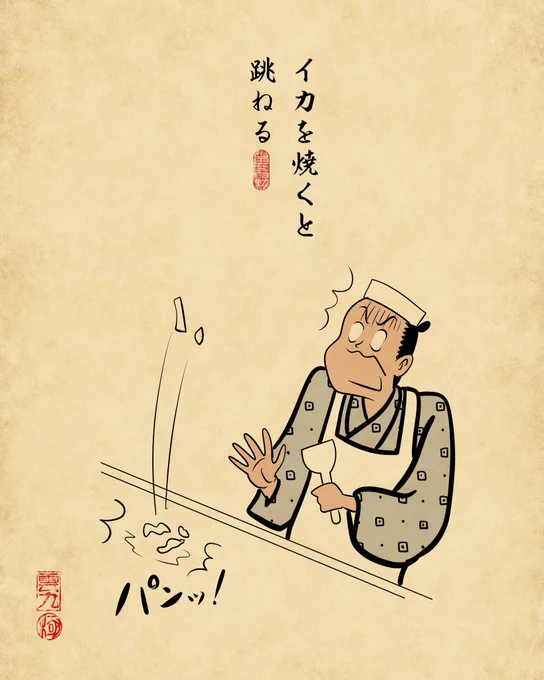 イカを焼くと
跳ねる
パンッ!